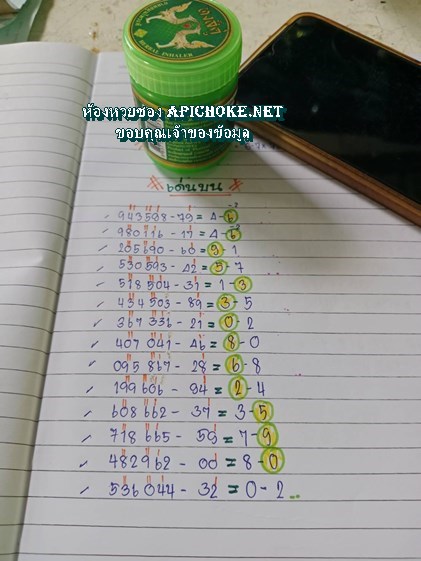 องศ์
HERBAL INHALER
ห้องหวยซอง APICHOKE.NET
ขอบคุณเจ้าของข้อมูล
เด่นบน
943598-79 = 4-6
980716-17 = 4-6
205690-60 = 9-1
530593-42 = 5-7
518504-31 = 1-3
434503-89 = 3-5
367336-21 = 0-2
407041-46 = 8-0
095867-28 = 6-8
199606-94 = 2-4
608662-37 = 3-5
718665-59 = 7-9
482962-00 = 8-0
536044-32 = 0-2..